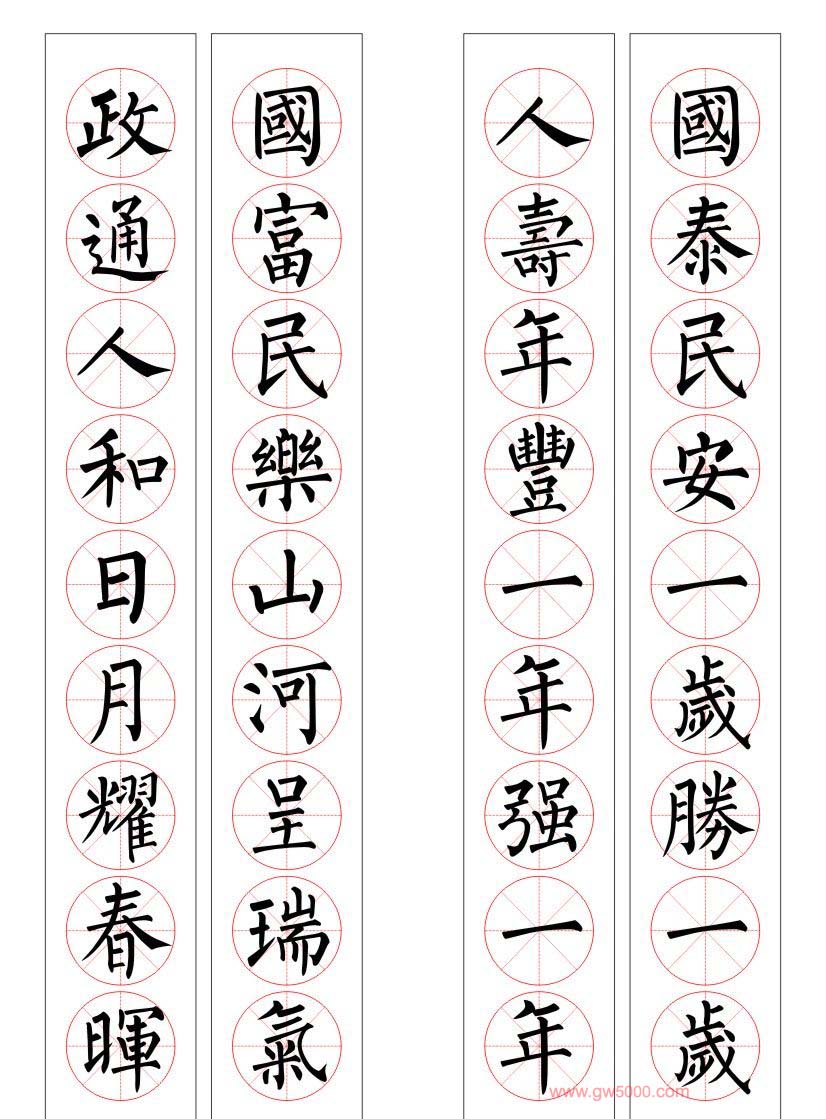 國泰民安一歲勝一歲
人壽年豐一年强一年
國富民樂山河呈瑞氣
政通人和日月耀春暉
www.gw5000.com